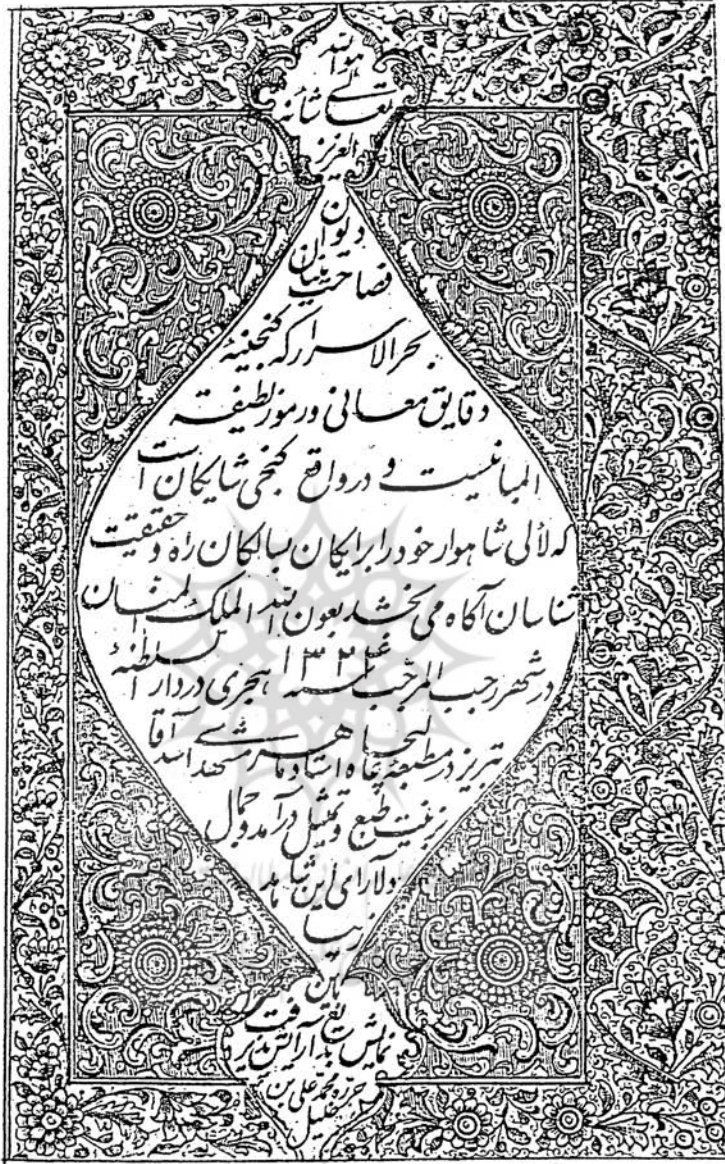 هو الله
تعالی شانه
العزیز
دیوان
فصاحت بنیان
بحر الاسرار که گنجینهٔ
دقایق معانی و رموز لطیفة
المبانیست و در واقع گنجی شایگان است
که لآلی شاهوار خود را برایگان بسالکان راه و حقیقت
شناسان آگاه می بخشد بعون الله الملک المنان
در شهر رجب المرجب سنه ۱۳۲۴ هجری در دار السلطنهٔ
تبریز در مطبعهٔ استاد ماهر مشهدی اسد آقا
بزینت طبع و تمثیل درآمد و جمال
دلارای این شاهد
زیبا
باین
نمایش بدیع آرایش پذیرفت
حرره محمد علی بن
خلیل